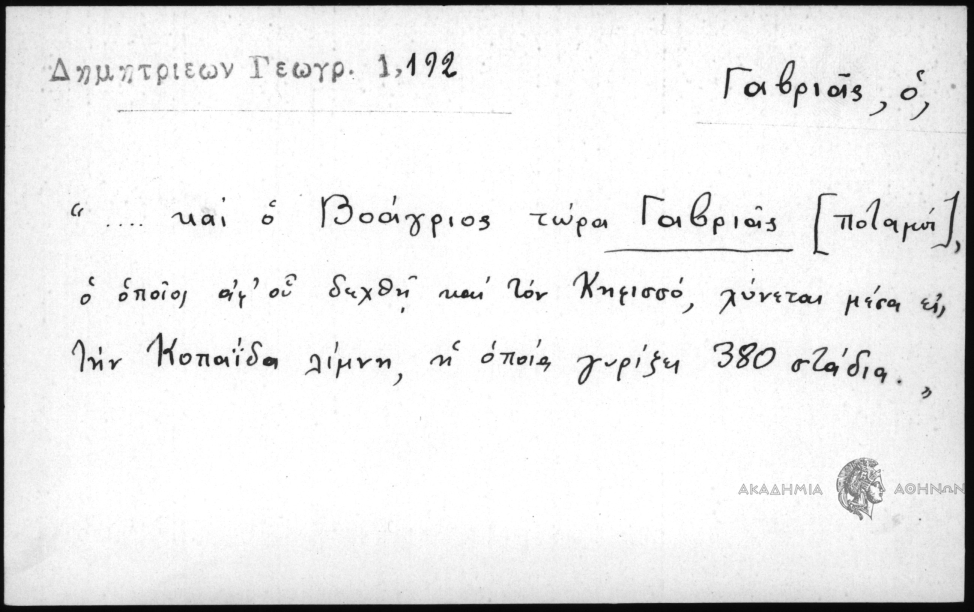 Δημητριεων Γεωγρ. 1,192
Γαβριᾶς, ὁ,
“.... καὶ ὁ Βοάγριος τώρα Γαβριᾶς [ποταμοί],
ὁ ὁποῖος ἀφ' οὗ δεχθῇ καὶ τὸν Κηφισσό, χύνεται μέσα εἰς
τὴν Κοπαΐδα λίμνη, ἡ ὁποία γυρίζει 380 στάδια.„
ΑΚΑΔΗΜΙΑ ΑΘΗΝΩΝ